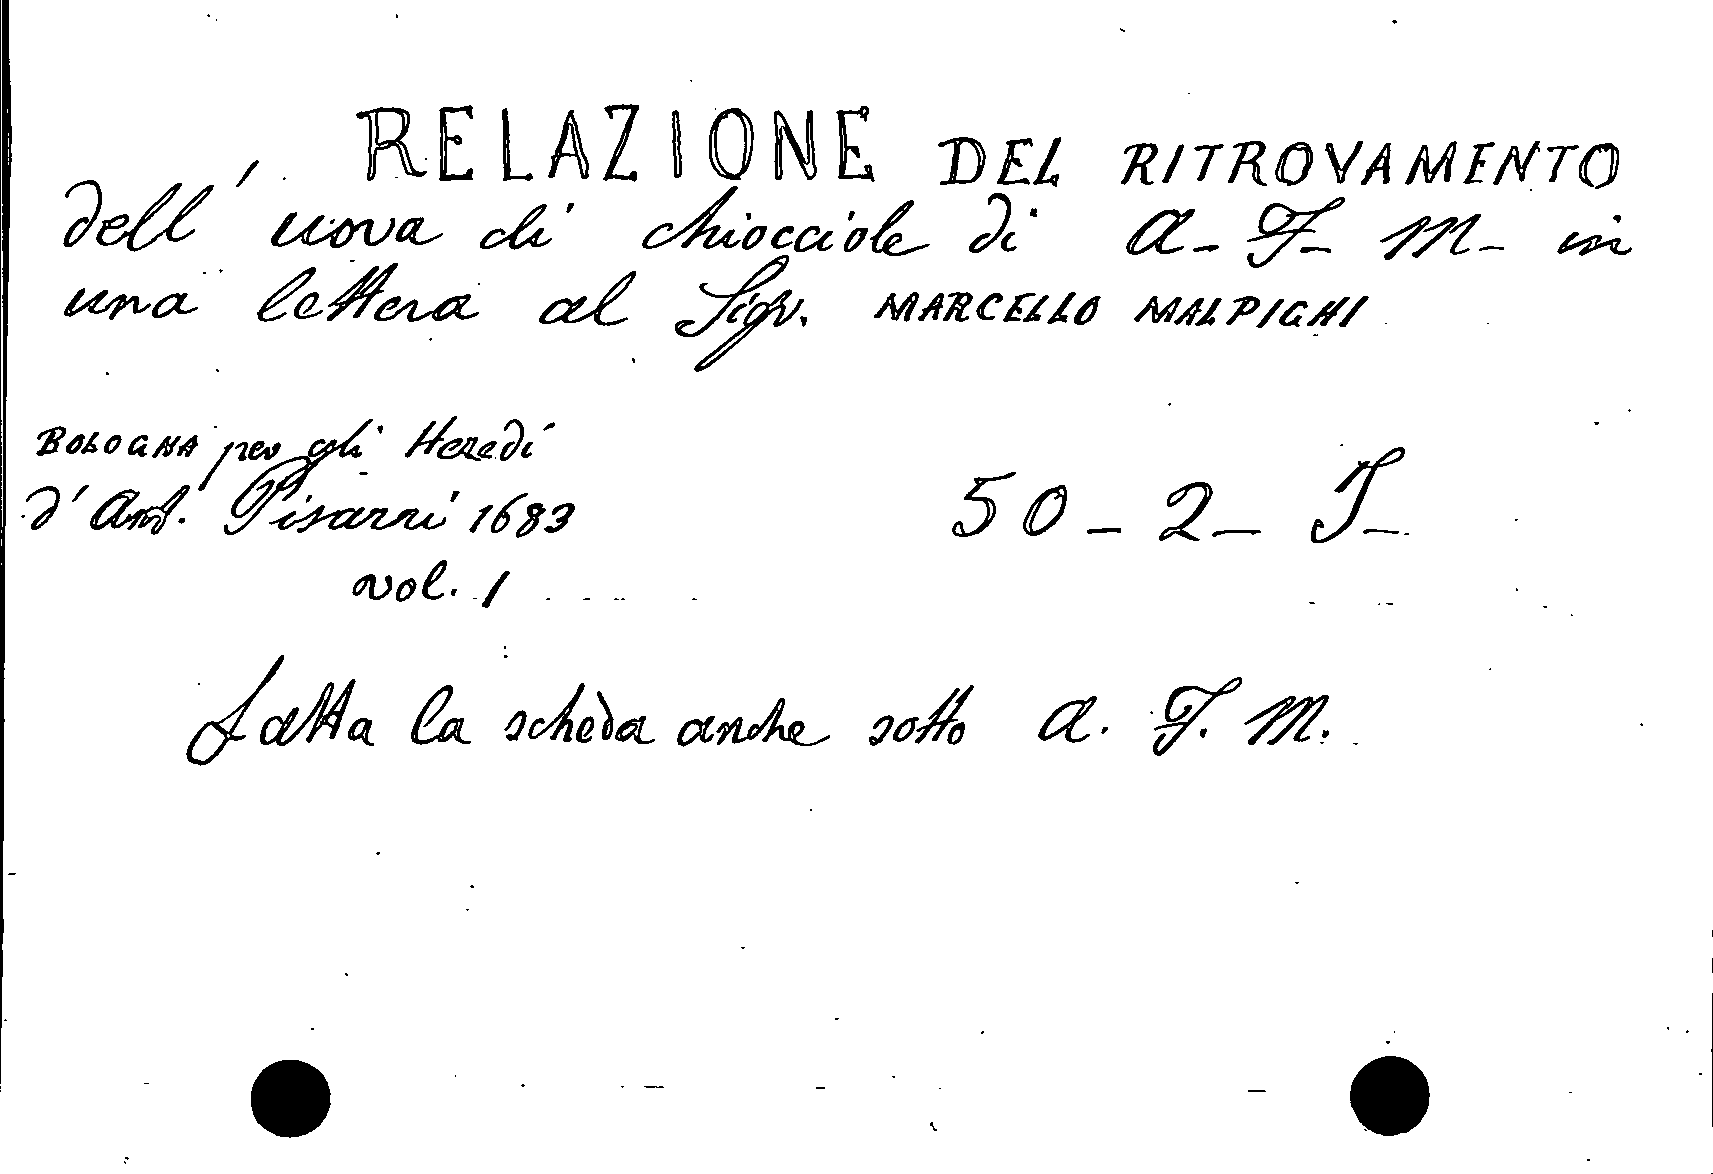 RELAZIONE DEL RITROVAMENTO
dell' uova di chiocciole di A_ F_ M_ in
una lettera al Sigr. MARCELLO MALPIGHI
BOLOGNA per gli Heredi
d'Ant. Pisarri 1683
vol. 1
50_2_I_
Fatta la scheda anche sotto A. F. M.